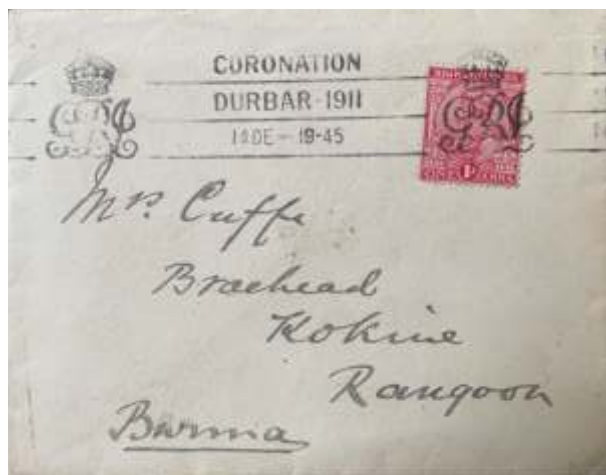 CORONATION
DURBAR-1911
DE-19-45
Mrs. Cuffe
Braehead
Kokine
Rangoon
Burma